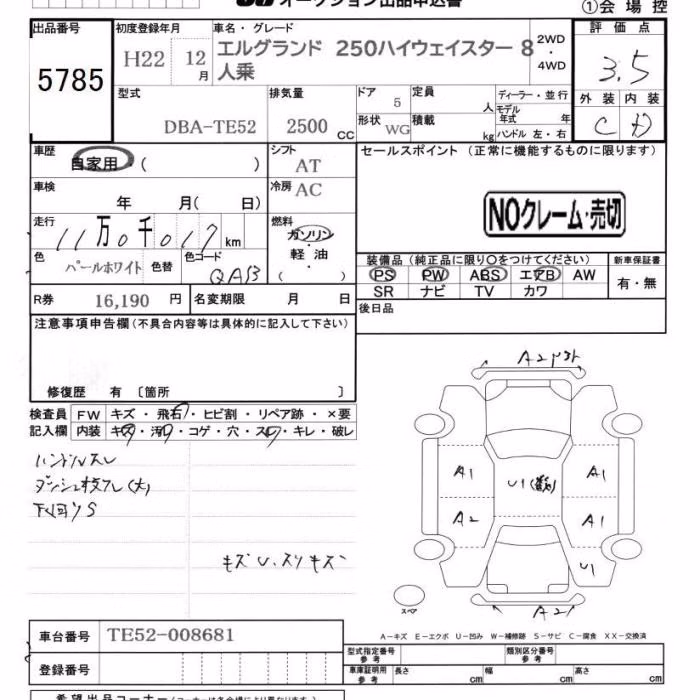 オークション出品申込書
①会場控
出品番号 初度登録年月 車名・グレード 評価点
5785 H22 12月 エルグランド 250ハイウェイスター 8人乗 2WD・4WD 3.5
型式 排気量 ドア 定員 ディーラー・並行 外装 内装
DBA-TE52 2500cc 5 人 モデル年式 年 C D
形状 WG 積載 kg ハンドル 左・右
車歴 シフト セールスポイント (正常に機能するものに限ります)
自家用・( ) AT
車検 冷房
年 月( 日) AC
NOクレーム・売切
走行 燃料
11万0千017km ガソリン・軽油( )
色 パールホワイト 色替 色コード QAB
装備品(純正品に限り○をつけてください) 新車保証書
PS PW ABS エアB AW 有・無
SR ナビ TV カワ
R券 16,190円 名変期限 月 日
後日品
注意事項申告欄(不具合内容等は具体的に記入して下さい)
修復歴 有 〔箇所 〕
検査員記入欄 FW キズ・飛石・ヒビ割・リペア跡・×要
内装 キズ・汚れ・コゲ・穴・スレ・キレ・破レ
ハンドルスレ
下回りS
キズU.スリキズ
A2
A1 A1
U1
A2 A1
U1
スペア
A2
A-キズ E-エクボ U-凹み W-補修跡 S-サビ C-腐食 XX-交換済
車台番号 TE52-008681
登録番号
型式指定番号 参考 類別区分番号 参考
車庫証明用 参考 長さ cm 幅 cm 高さ cm
希望出品コーナー